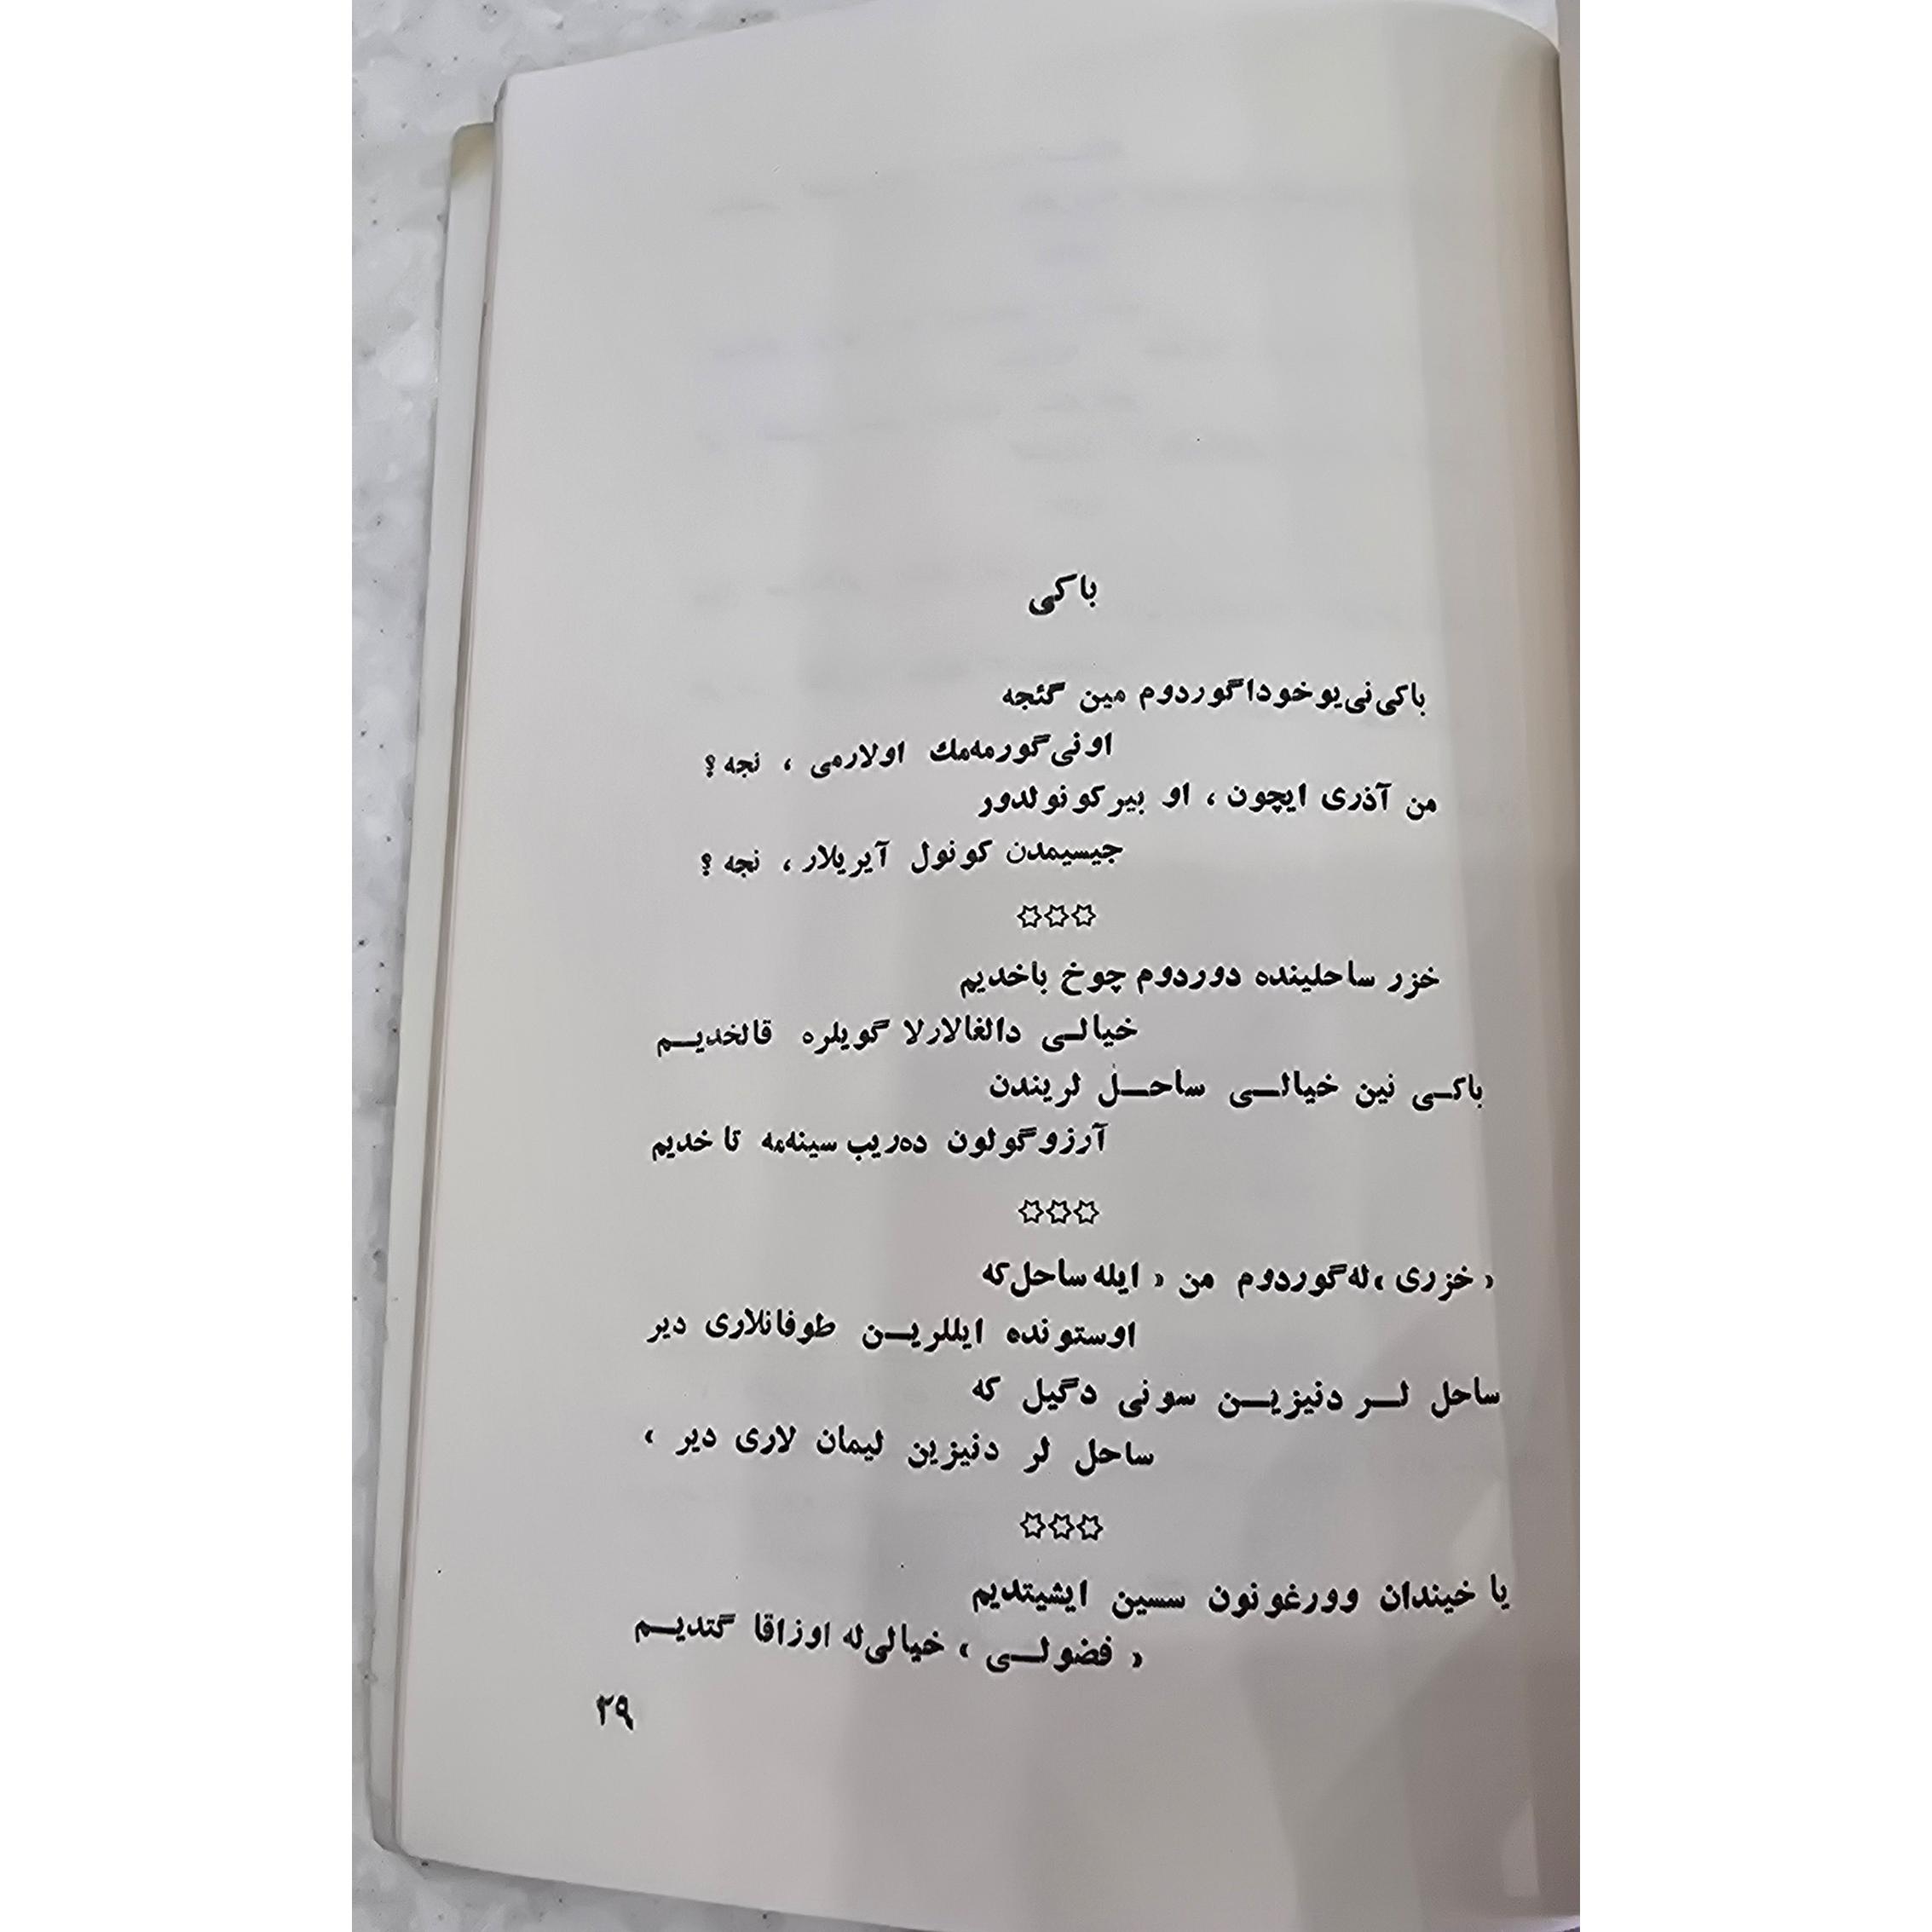 باکی
باکی‌نی‌یوخودا گوردوم مین گئجه
اونی گورمه‌مك اولارمی ، نجه ؟
من آذری ایچون ، او بیر کونولدور
جیسیمدن کونول آیریلار ، نجه ؟
✡✡✡
خزر ساحلینده دوردوم چوخ باخدیم
خیالـی دالغالارلا گویلره قالخدیـم
باکـی نین خیالـی ساحـل لریندن
آرزو گولون ده‌ریب سینه‌مه تاخدیم
✡✡✡
« خزری »له گوردوم من « ایله ساحل که
اوستونده ایللریـن طوفانلاری دیر
ساحل لـر دنیزیـن سونی دگیل که
ساحل لر دنیزین لیمان لاری دیر »
✡✡✡
یا خیندان وورغونون سسین ایشیتدیم
« فضولـی » خیالی‌له اوزاقا گتدیـم
۲۹